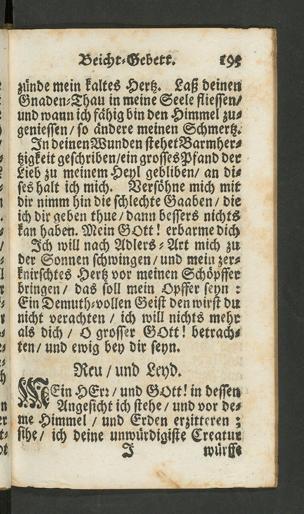 Beicht-Gebett. 195
zünde mein kaltes Hertz. Laß deinen
Gnaden-Thau in meine Seele fliessen/
und wann ich fähig bin den Himmel zu-
geniessen/ so ändere meinen Schmertz.
In deinen Wunden stehet Barmher-
tzigkeit geschriben/ein grosses Pfand der
Lieb zu meinem Heyl gebliben/ an di-
ses halt ich mich. Versöhne mich mit
dir nimm hin die schlechte Gaaben/ die
ich dir geben thue/ dann bessers nichts
kan haben. Mein GOtt! erbarme dich
Ich will nach Adlers-Art mich zu
der Sonnen schwingen/ und mein zer-
knirschtes Hertz vor meinen Schöpffer
bringen/ das soll mein Opffer seyn:
Ein Demuth-vollen Geist den wirst du
nicht verachten/ ich will nichts mehr
als dich/ O grosser GOtt! betrach-
ten/ und ewig bey dir seyn.
Reu/ und Leyd.
MEin HErr/ und GOtt! in dessen
Angesicht ich stehe/ und vor de-
me Himmel/ und Erden erzitteren;
sihe/ ich deine unwürdigiste Creatur
J würffe